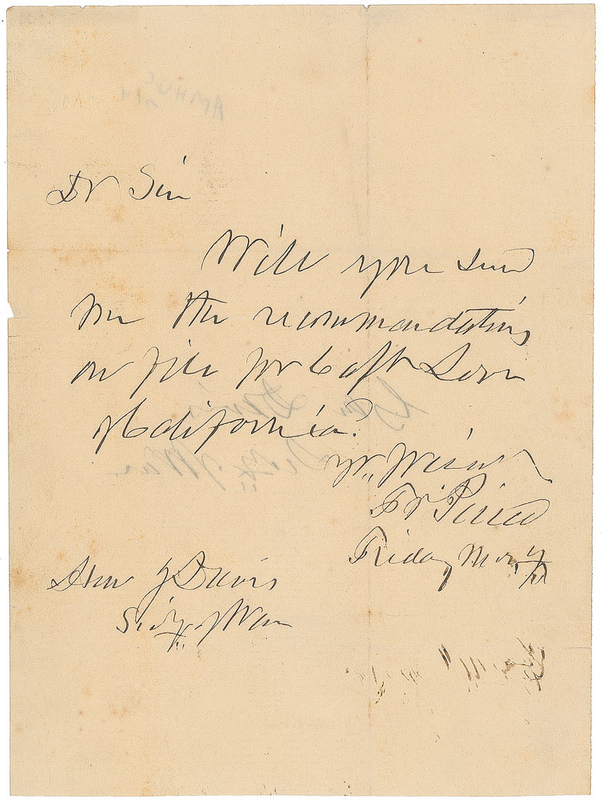 Dr Sir
Will you send
me the recommendations
on file for Capt Love
of California?
yr. friend
Fr. Pierce
Friday Mor.g
Hon J Davis
Secty of War